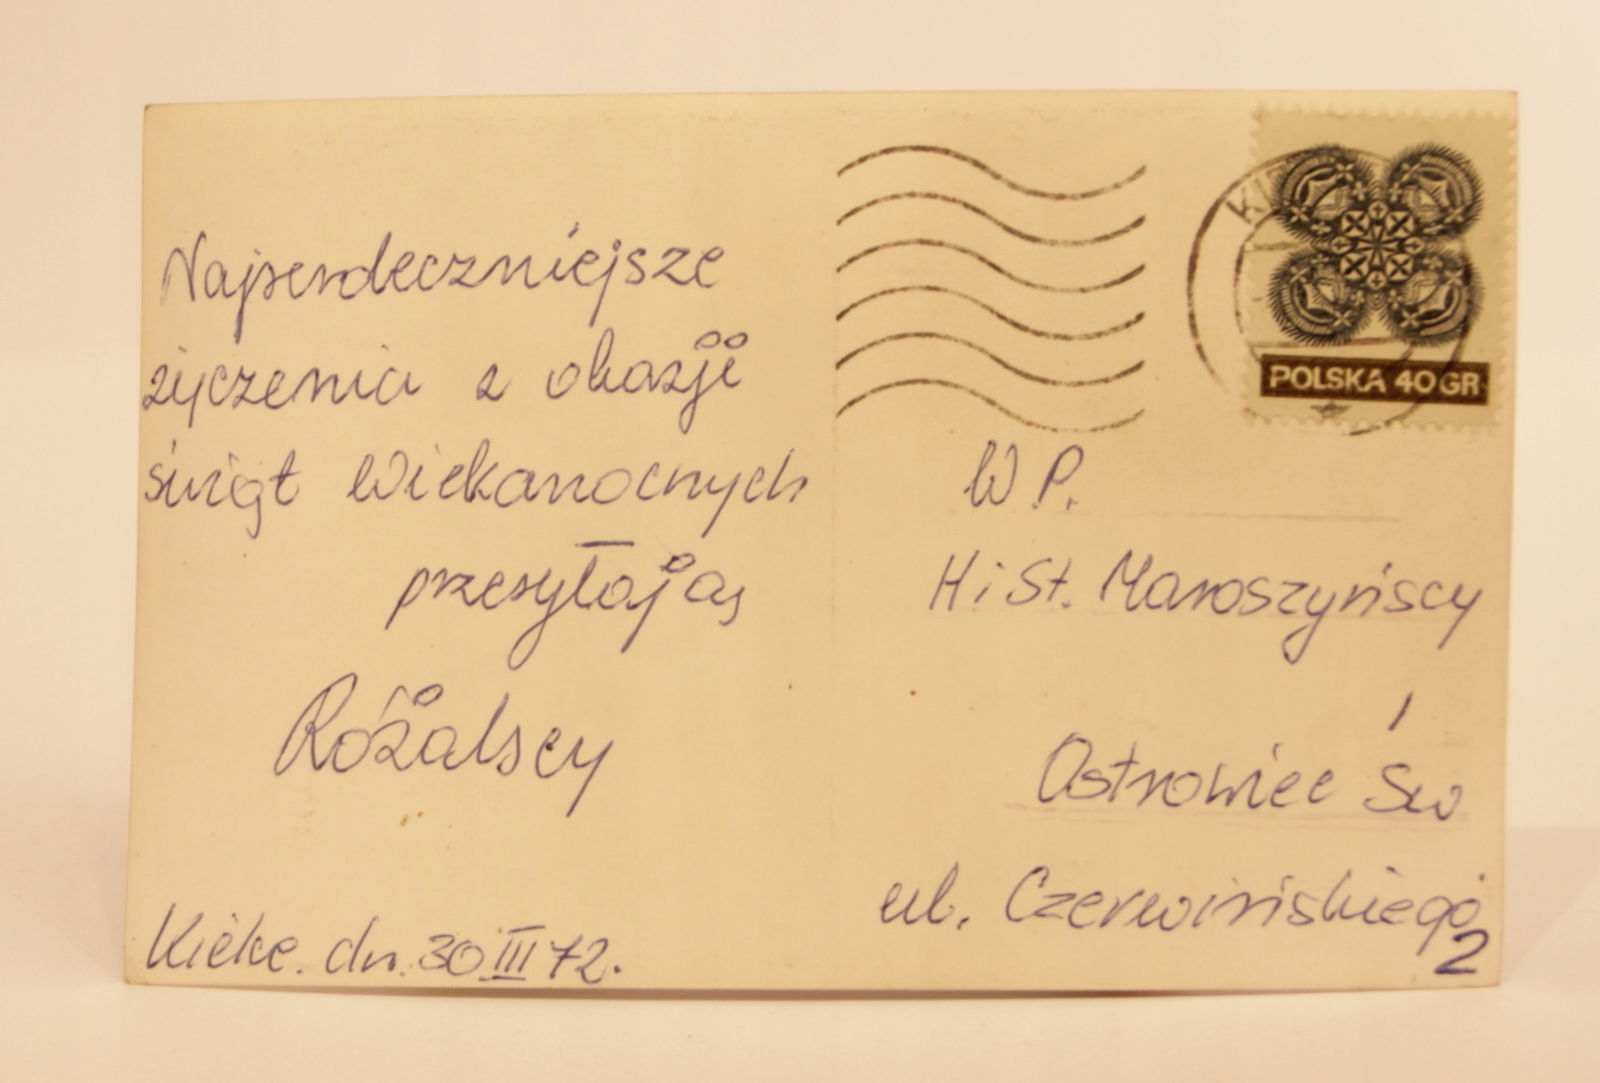 Najserdeczniejsze
życzenia z okazji
świąt Wielkanocnych
przesyłają
Różalscy
Kielce. dn. 30 III 72.
POLSKA 40 GR
W P.
H i St. Maroszyńscy
Ostrowiec Św
ul. Czerwińskiego
2